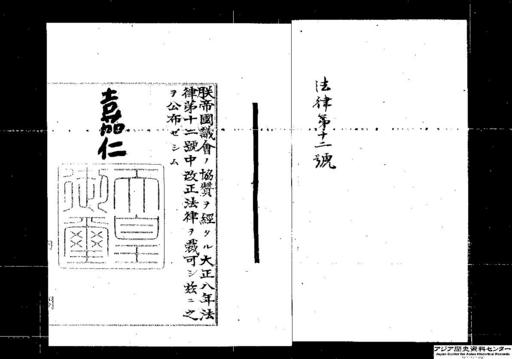 法律第十二號
朕帝國議會ノ協贊ヲ經タル大正八年法
律第十二號中改正法律ヲ裁可シ茲ニ之
ヲ公布セシム
嘉仁
天皇
御璽
アジア歴史資料センター
Japan Center for Asian Historical Records